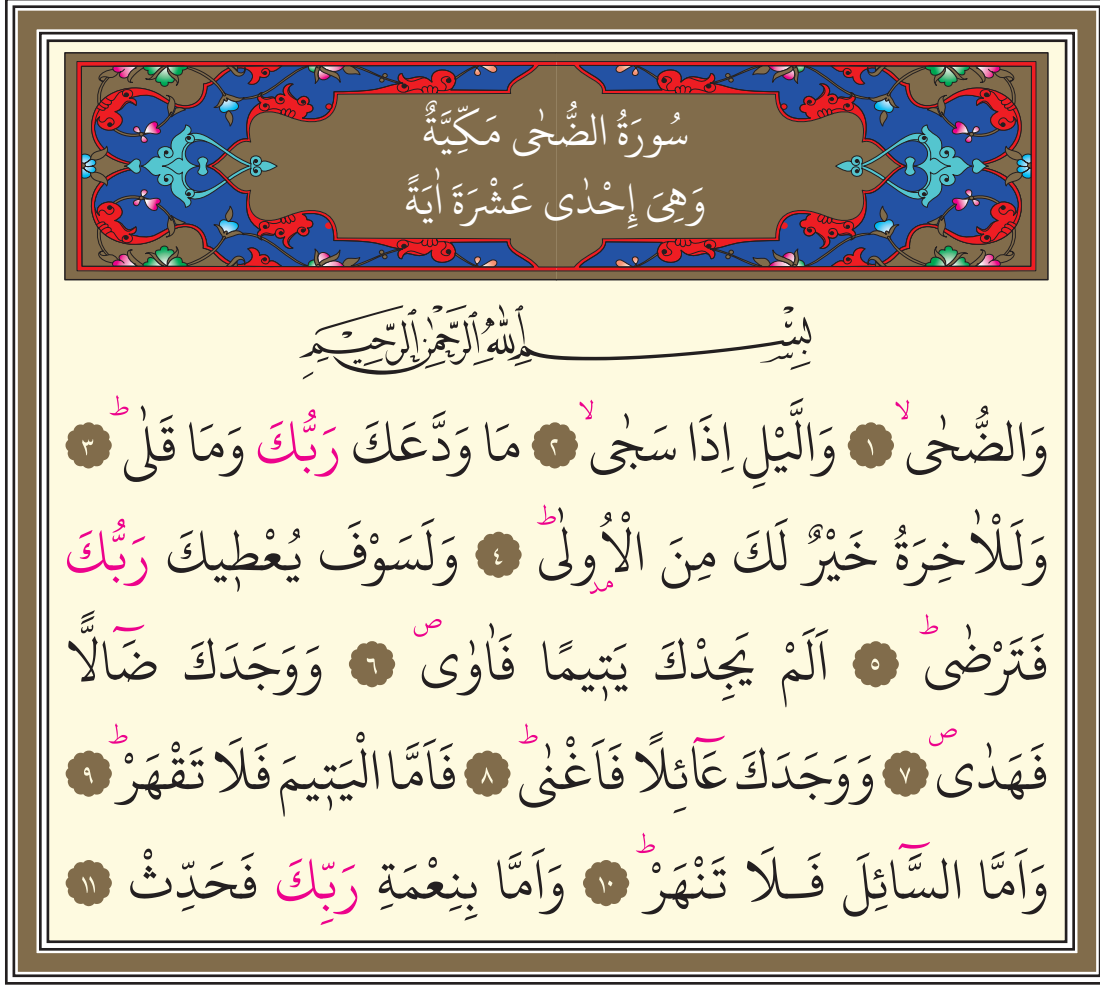 سُورَةُ الضُّحٰى مَكِّيَّةٌ
وَهِيَ إِحْدٰى عَشْرَةَ اٰيَةً
بِسْمِ اللّٰهِ الرَّحْمٰنِ الرَّحِيمِ
وَالضُّحٰىۙ ﴿١﴾ وَالَّيْلِ اِذَا سَجٰىۙ ﴿٢﴾ مَا وَدَّعَكَ رَبُّكَ وَمَا قَلٰىؕ ﴿٣﴾
وَلَلْاٰخِرَةُ خَيْرٌ لَكَ مِنَ الْاُو۫لٰىؕ ﴿٤﴾ وَلَسَوْفَ يُعْط۪يكَ رَبُّكَ
فَتَرْضٰىؕ ﴿٥﴾ اَلَمْ يَجِدْكَ يَت۪يمًا فَاٰوٰىۖ ﴿٦﴾ وَوَجَدَكَ ضَٓالًّا
فَهَدٰىۖ ﴿٧﴾ وَوَجَدَكَ عَٓائِلًا فَاَغْنٰىؕ ﴿٨﴾ فَاَمَّا الْيَت۪يمَ فَلَا تَقْهَرْؕ ﴿٩﴾
وَاَمَّا السَّٓائِلَ فَلَا تَنْهَرْؕ ﴿١٠﴾ وَاَمَّا بِنِعْمَةِ رَبِّكَ فَحَدِّثْ ﴿١١﴾